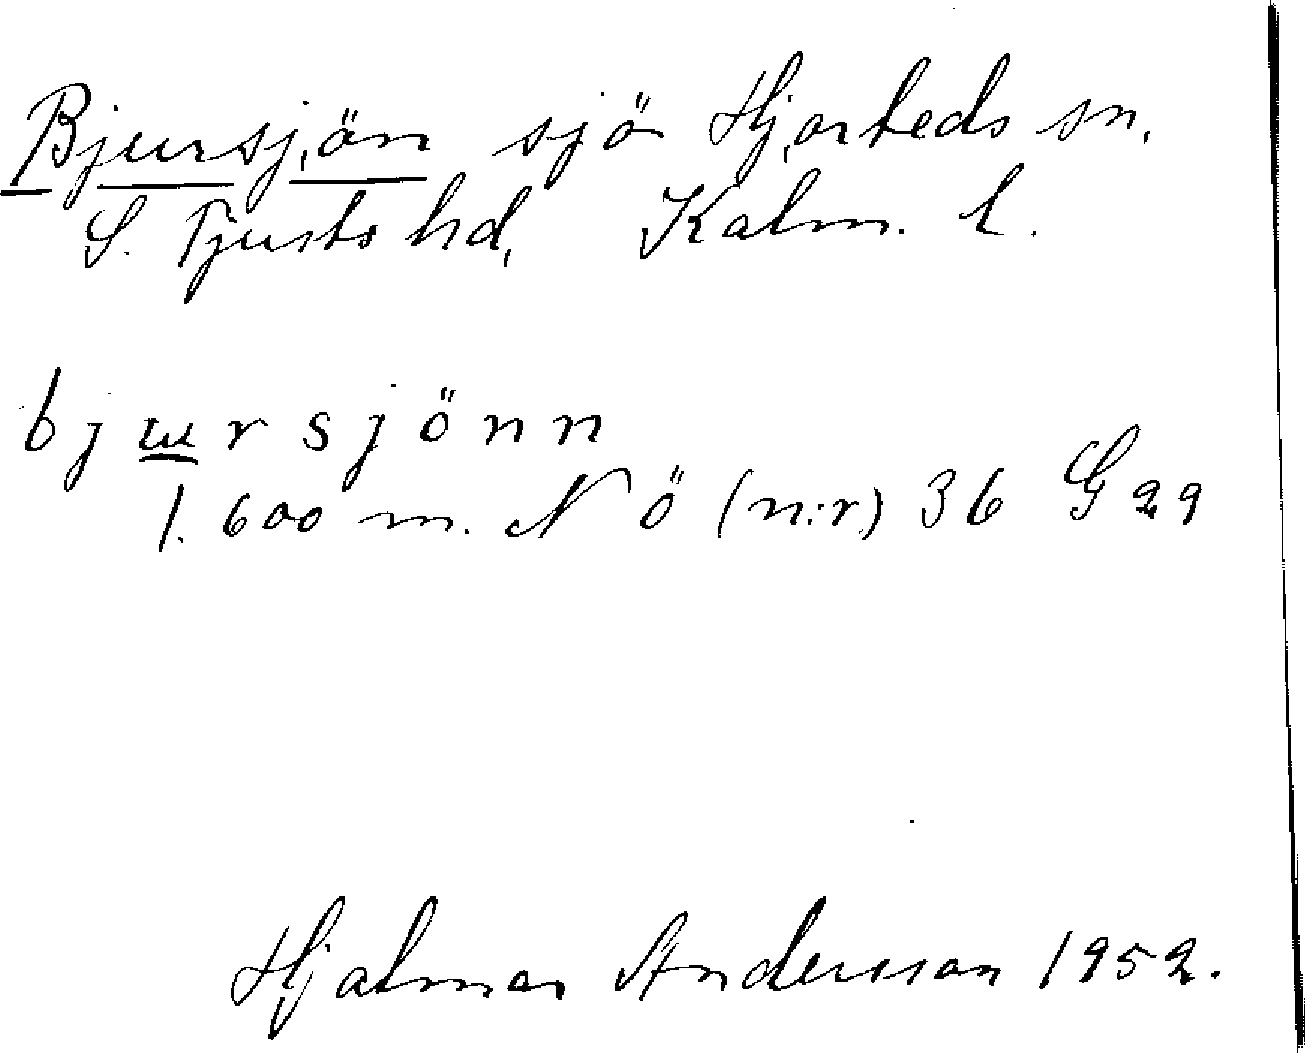 Bjursjön sjö Hjorteds sn.
S. Tjusts hd, Kalm. l.
bjursjönn
1.600 m. NÖ (n:r) 36 G 29
Hjalmar Andersson 1952.